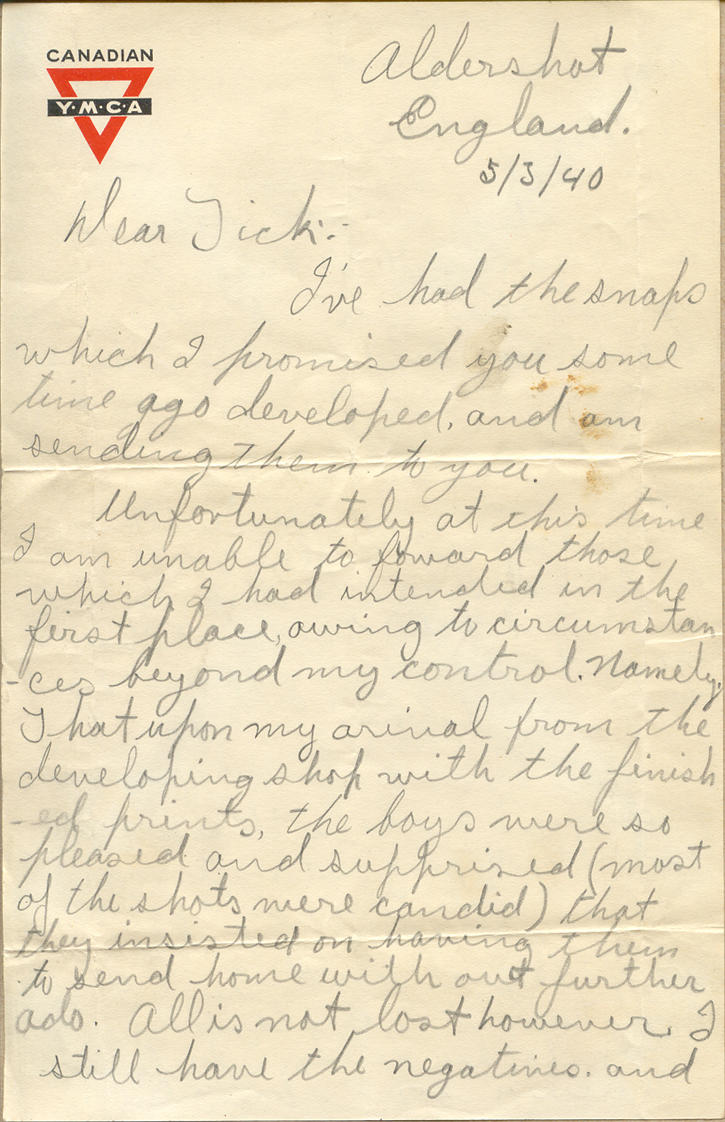 CANADIAN
Y·M·C·A
Aldershot
England.
5/3/40
Dear Tick:-
I've had the snaps
which I promised you some
time ago developed, and am
sending them to you.
Unfortunately at this time
I am unable to foward those
which I had intended in the
first place, owing to circumstan
-ces beyond my control. Namely,
That upon my arival from the
developing shop with the finish
-ed prints, the boys were so
pleased and supprised (most
of the shots were candid) that
they insisted on having them
to send home with out further
ado. All is not lost however, I
still have the negatives. and